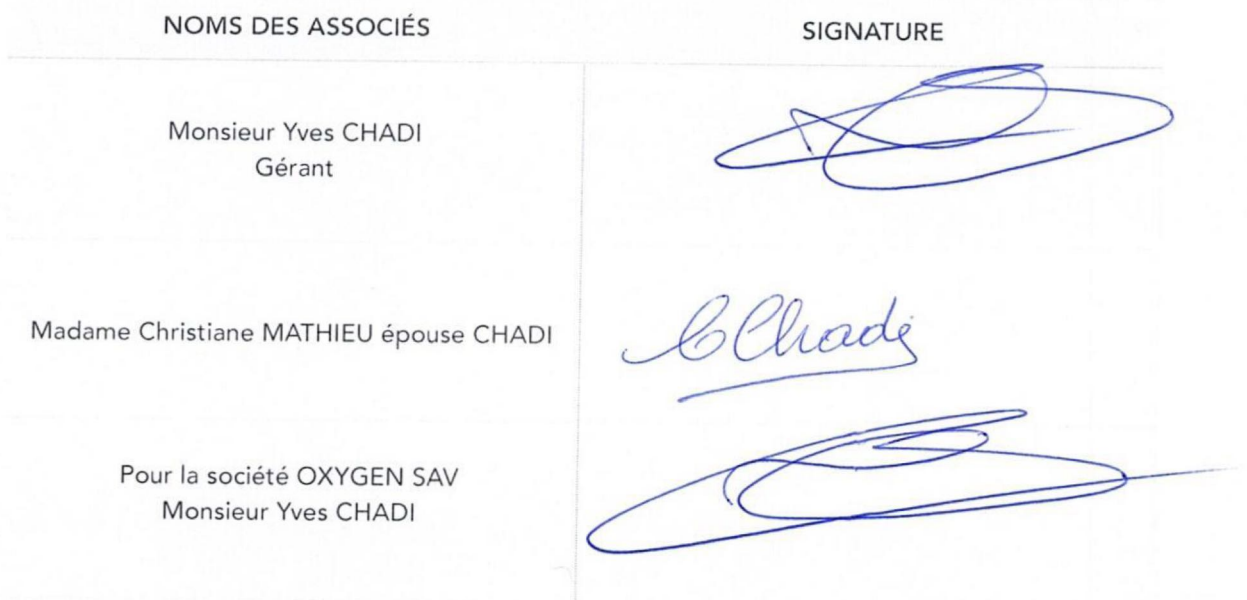 NOMS DES ASSOCIÉS
SIGNATURE
Monsieur Yves CHADI
Gérant
Madame Christiane MATHIEU épouse CHADI
C Chadi
Pour la société OXYGEN SAV
Monsieur Yves CHADI